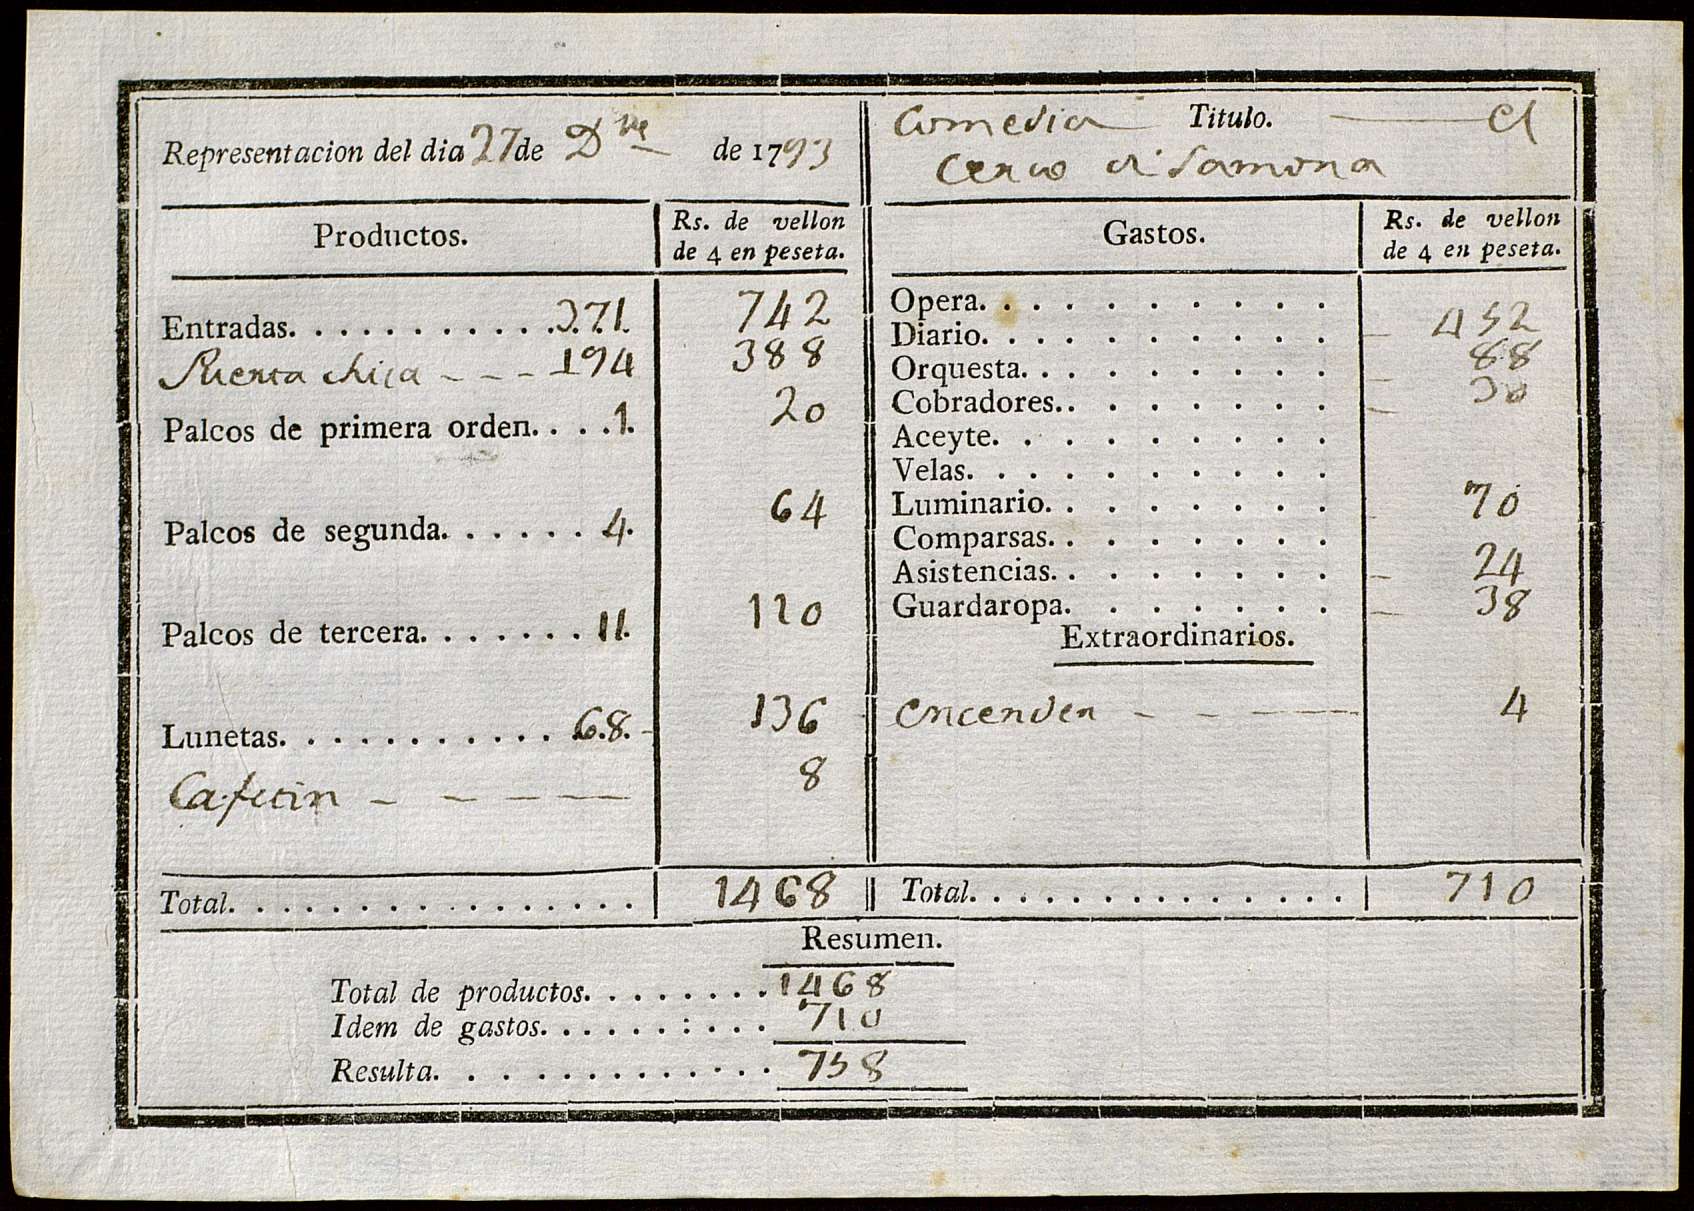 Representacion del dia 27 de Dre de 1793
Productos. Rs. de vellon de 4 en peseta.
Entradas. . . . . . . . . . . 371. 742
Puerta chica - - - 194 388
Palcos de primera orden. . . . 1. 20
Palcos de segunda. . . . . . 4. 64
Palcos de tercera. . . . . . . 11. 110
Lunetas. . . . . . . . . . . . 68. - 136
Cafetin - - - - 8
Total. . . . . . . . . . . . . . . . 1468
Comedia Titulo. El
Cerco de Zamora
Gastos. Rs. de vellon de 4 en peseta.
Opera. . . . . . . . . .
Diario. . . . . . . . . . 452
Orquesta. . . . . . . . . 88
Cobradores. . . . . . . . 30
Aceyte. . . . . . . . .
Velas. . . . . . . . . .
Luminario. . . . . . . . 70
Comparsas. . . . . . . .
Asistencias. . . . . . . . 24
Guardaropa. . . . . . . 38
Extraordinarios.
encender - - - 4
Total. . . . . . . . . . . . . . . 710
Resumen.
Total de productos. . . . . . . . 1468
Idem de gastos. . . . . . : . . . 710
Resulta. . . . . . . . . . . . . 758